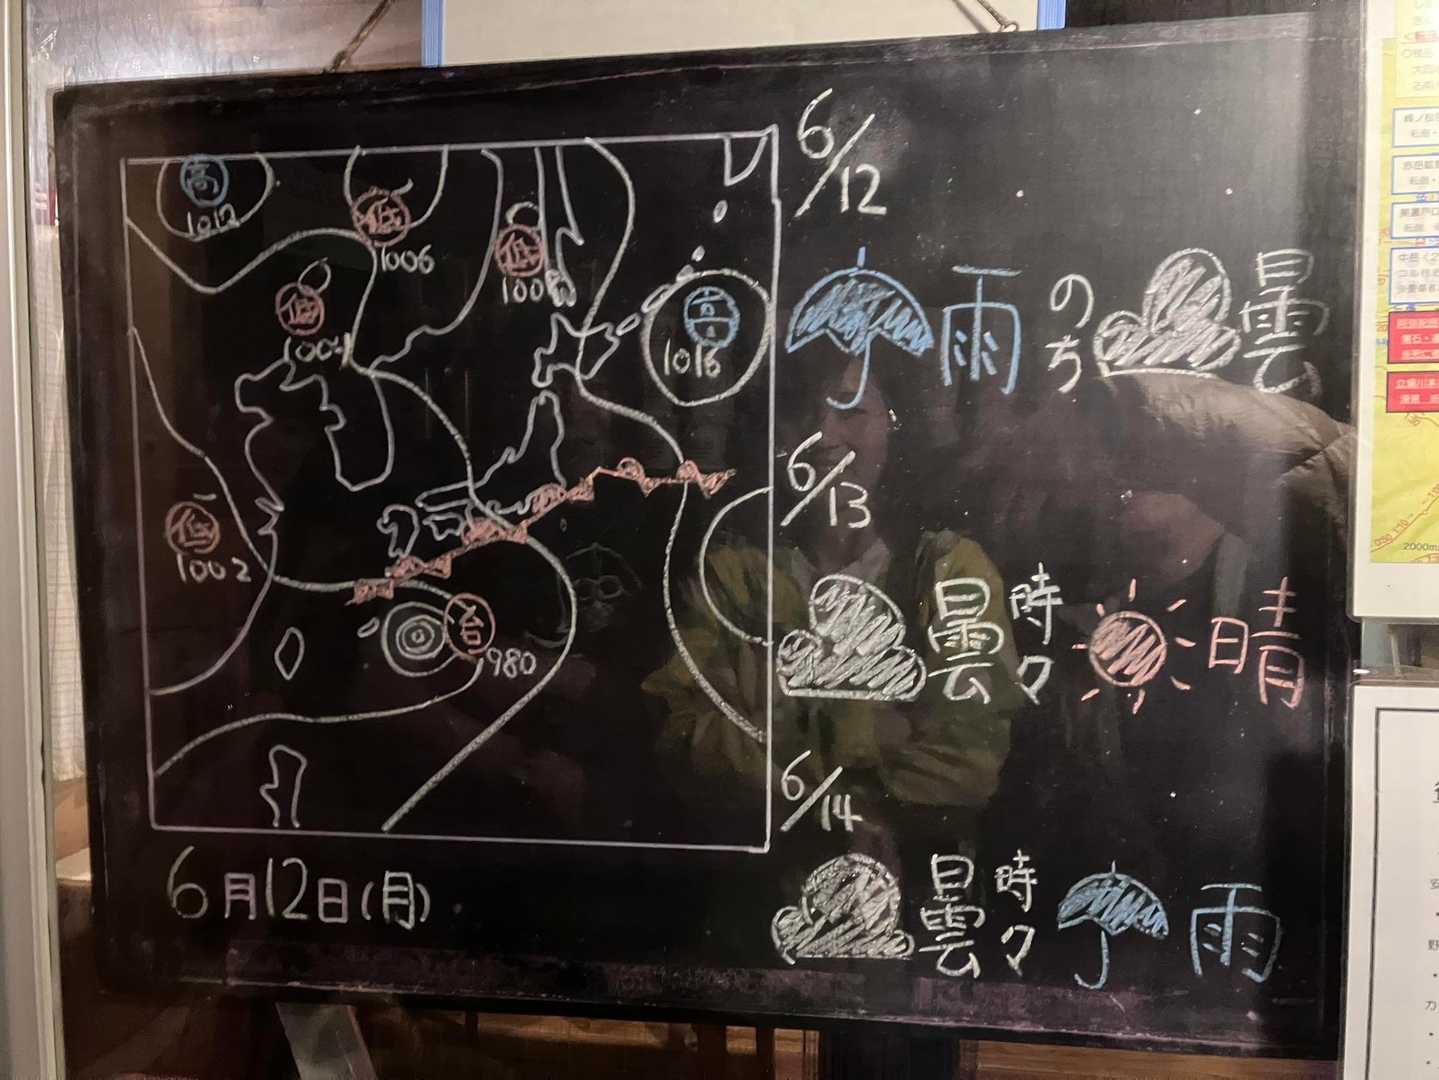 高
1012
低
1006
低
100
低
1004
高
1016
低
1002
台
980
6月12日(月)
6/12
雨のち曇
6/13
曇時々晴
6/14
曇時々雨
2000m